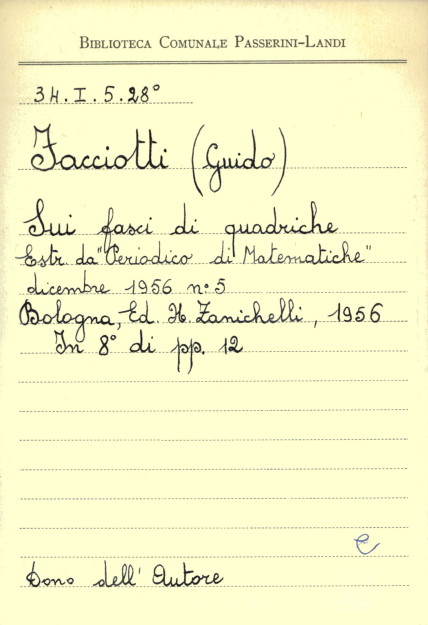 BIBLIOTECA COMUNALE PASSERINI-LANDI
34.I.5.28°
Facciotti (Guido)
Sui fasci di quadriche
Estr. da "Periodico di Matematiche"
dicembre 1956 n°5
Bologna, Ed. N. Zanichelli, 1956
In 8° di pp. 12
e
Dono dell' Autore